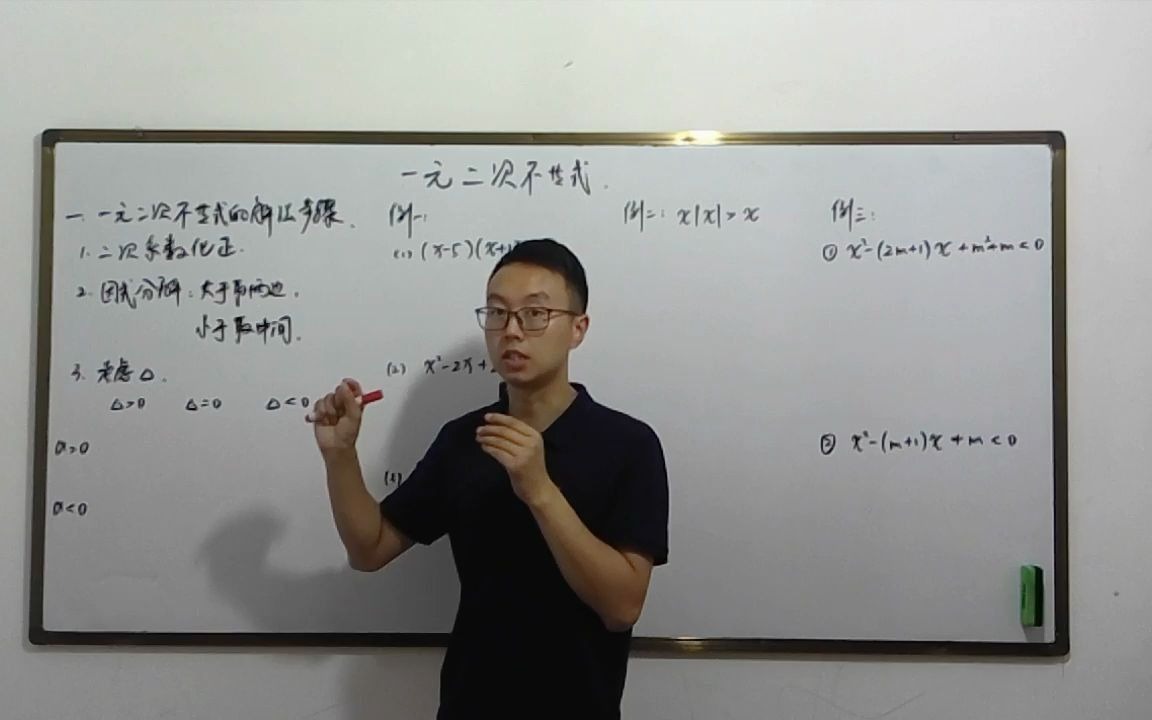 一元二次不等式.
一. 一元二次不等式的解法步骤.
1. 二次系数化正.
2. 因式分解: 大于取两边.
小于取中间.
3. 考虑△.
△>0 △=0 △<0
a>0
a<0
例一:
(1) (x-5)(x+1
(2) x²-2x+
例二: x|x|>x
例三:
① x²-(2m+1)x+m²+m<0
② x²-(m+1)x+m<0